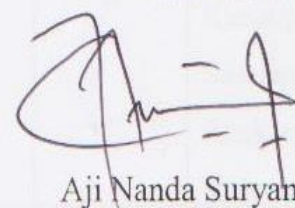 Aji Nanda Suryan